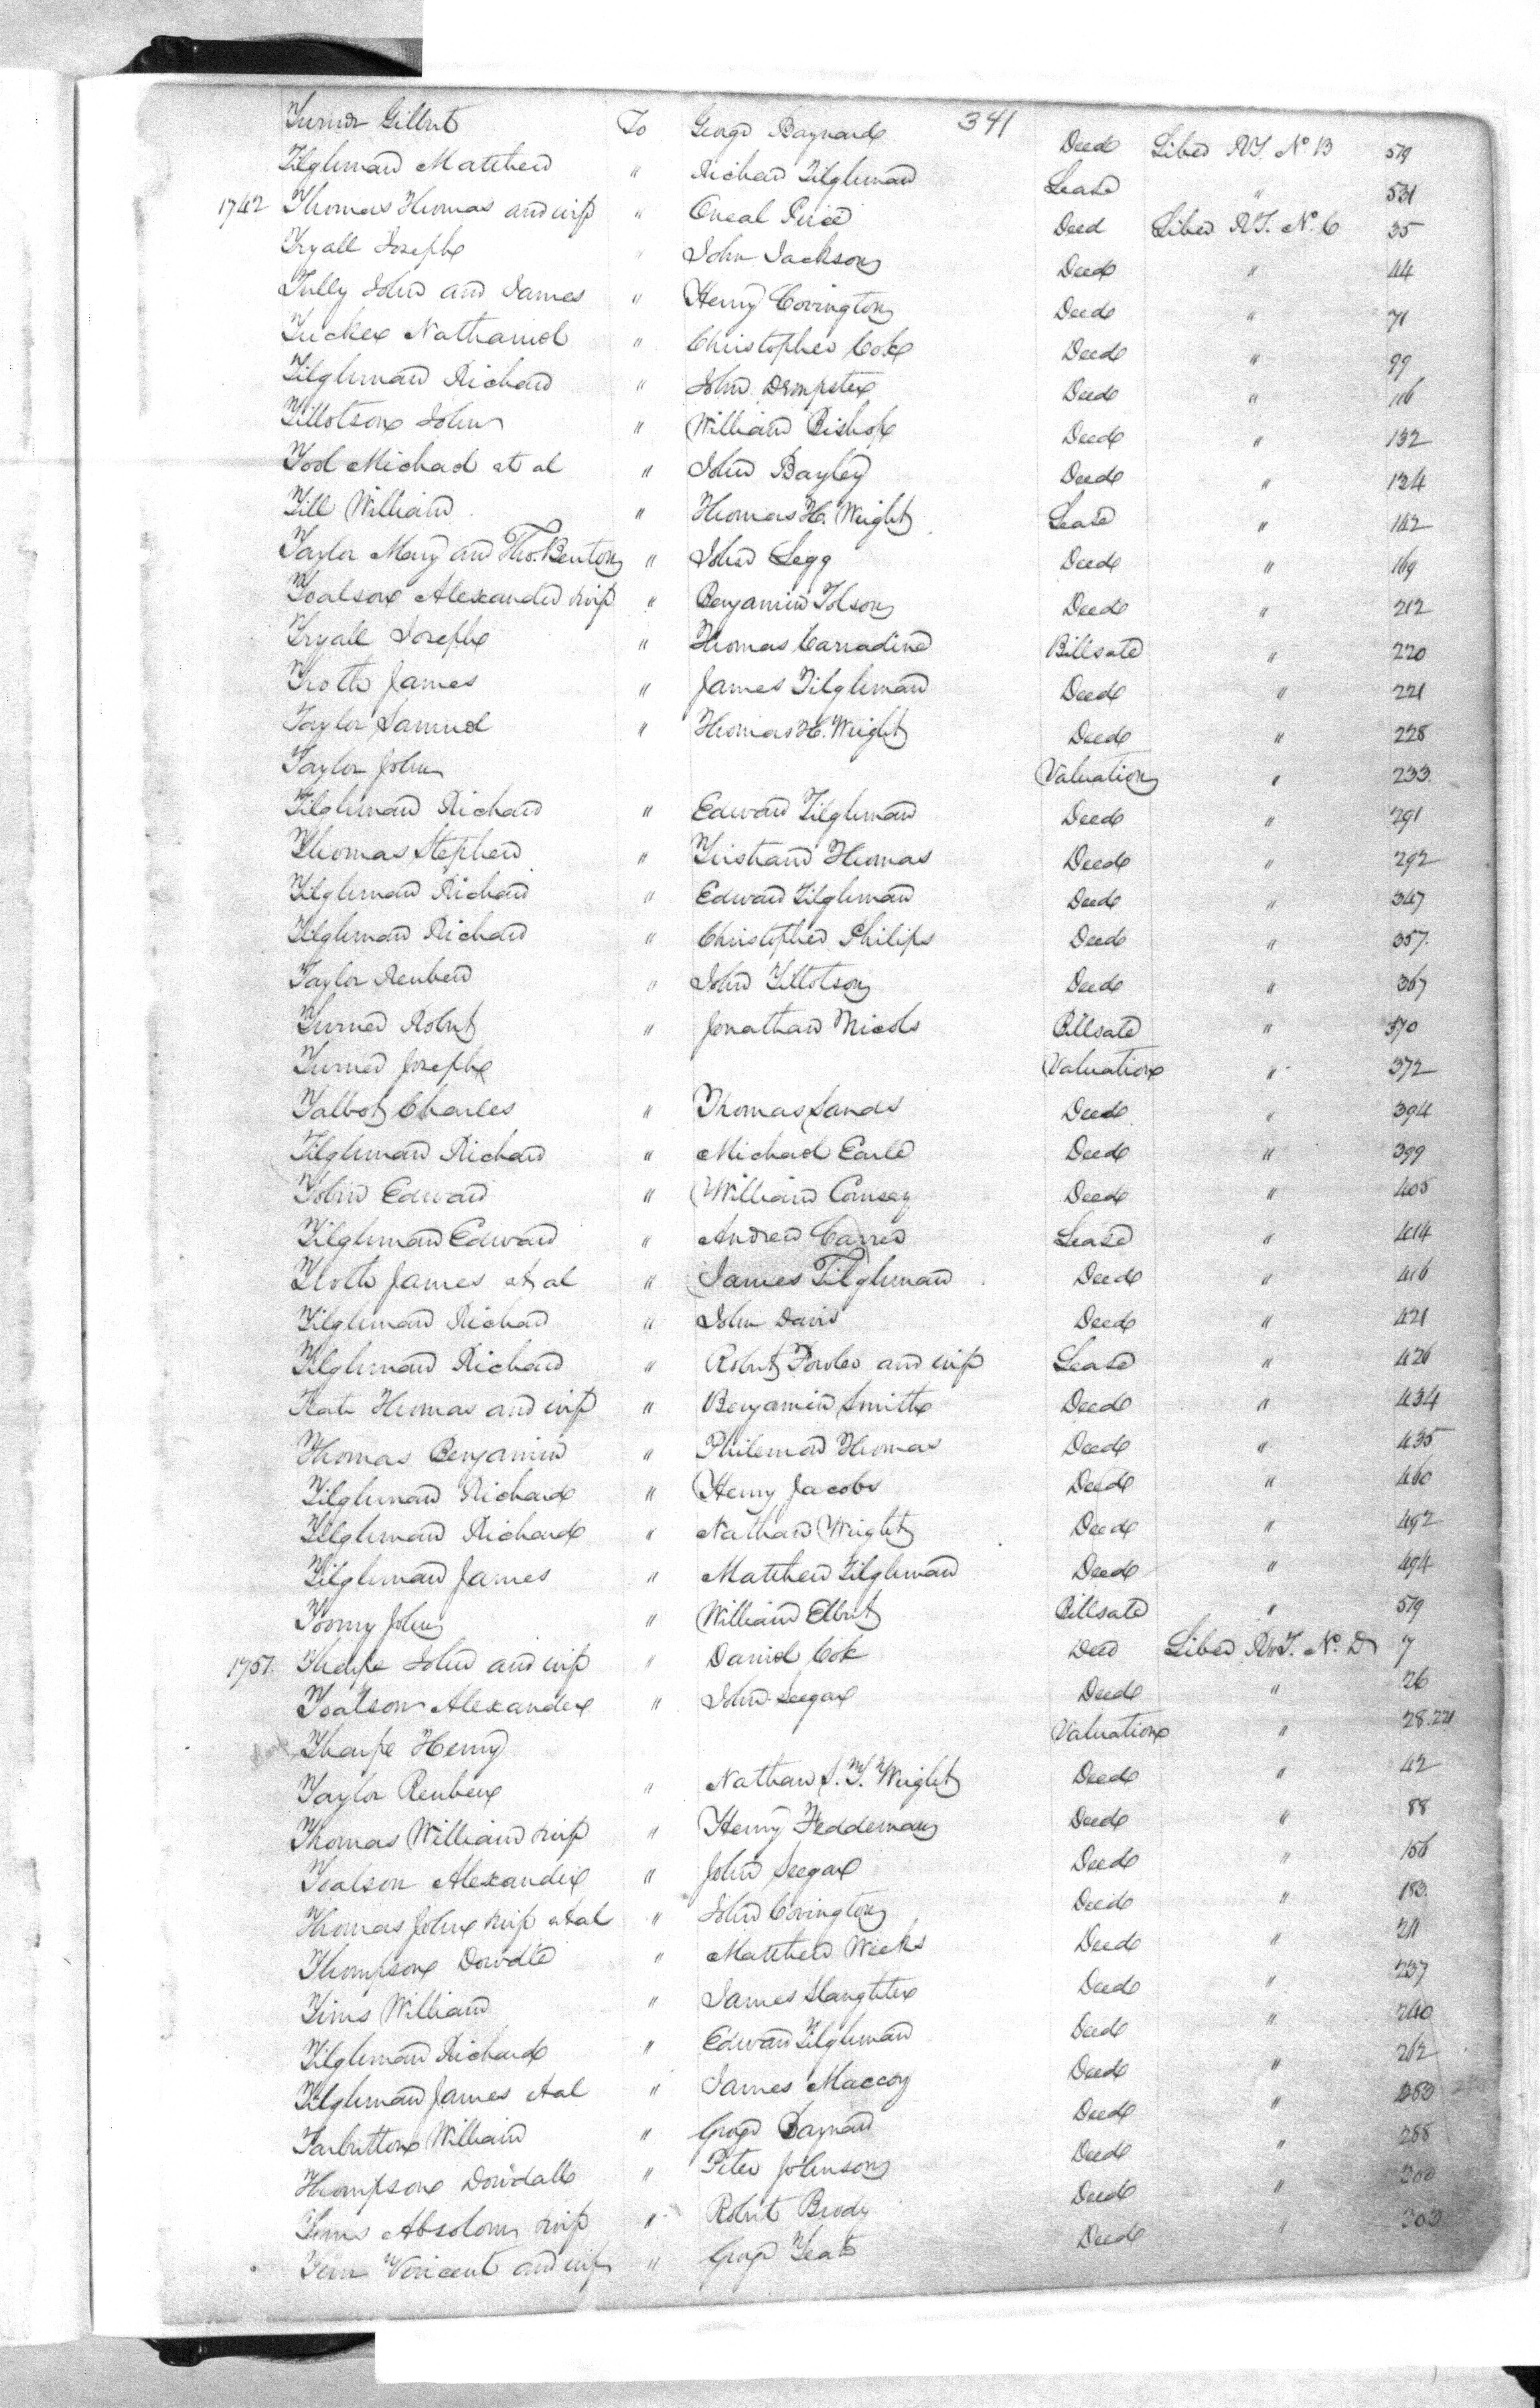 341
Turner Gilbert To George Baynard Deed Liber RT. No. B 519
Tilghman Matthew " Richard Tilghman Lease " 531
1742 Thomas Thomas and wife " Oneal Price Deed Liber RT. No. C 35
Tryall Joseph " John Jackson Deed " 44
Tully John and James " Henry Covington Deed " 71
Tucker Nathaniel " Christopher Cox Deed " 99
Tilghman Richard " John Dempster Deed " 116
Tillotson John " William Bishop Deed " 132
Tod Michael et al " John Bayley Deed " 134
Till William " Thomas H. Wright Lease " 142
Taylor Mary and Tho. Benton " John Legg Deed " 169
Toalson Alexander & wife " Benjamin Tolson Deed " 212
Tryall Joseph " Thomas Carradine Billsale " 220
Troth James " James Tilghman Deed " 221
Taylor Samuel " Thomas H. Wright Deed " 228
Taylor John Valuation " 233
Tilghman Richard " Edward Tilghman Deed " 291
Thomas Stephen " Tristram Thomas Deed " 292
Tilghman Richard " Edward Tilghman Deed " 347
Tilghman Richard " Christopher Philips Deed " 357
Taylor Reuben " John Tillotson Deed " 367
Turner Robert " Jonathan Nicols Billsale " 370
Turner Joseph Valuation " 372
Talbot Charles " Thomas Sands Deed " 394
Tilghman Richard " Michael Earle Deed " 399
Tobin Edward " William Comsey Deed " 405
Tilghman Edward " Andrew Carrer Lease " 414
Troth James et al " James Tilghman Deed " 416
Tilghman Richard " John Davis Deed " 421
Tilghman Richard " Robert Fowler and wife Lease " 426
Tate Thomas and wife " Benjamin Smith Deed " 434
Thomas Benjamin " Philemon Thomas Deed " 435
Tilghman Richard " Henry Jacobs Deed " 460
Tilghman Richard " Nathan Wright Deed " 492
Tilghman James " Matthew Tilghman Deed " 494
Toomy John " William Elbert Billsale " 519
1751. Tharpe John and wife " Daniel Cox Deed Liber RT. No. D 7
Toalson Alexander " John Seegar Deed " 26
Tharpe Henry Valuation " 28.221
Taylor Reuben " Nathan S. T. Wright Deed " 42
Thomas William & wife " Henry Feddeman Deed " 88
Toalson Alexander " John Seegar Deed " 156
Thomas John & wife et al " John Covington Deed " 183
Thompson Dowdle " Matthew Weeks Deed " 211
Tims William " James Slaughter Deed " 237
Tilghman Richard " Edward Tilghman Deed " 240
Tilghman James et al " James Maccoy Deed " 262
Tarbutton William " George Baynard Deed " 283
Thompson Dowdall " Peter Johnson Deed " 288
Tims Absolom & wife " Robert Brody Deed " 300
Tim Vincent and wife " George Yeats Deed " 303